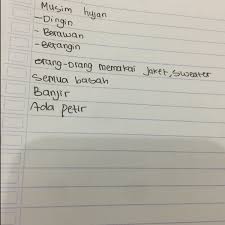 Musim hujan
-Dingin
- Berawan
- Berangin
orang-orang memakai jaket, sweater
semua basah
Banjir
Ada petir